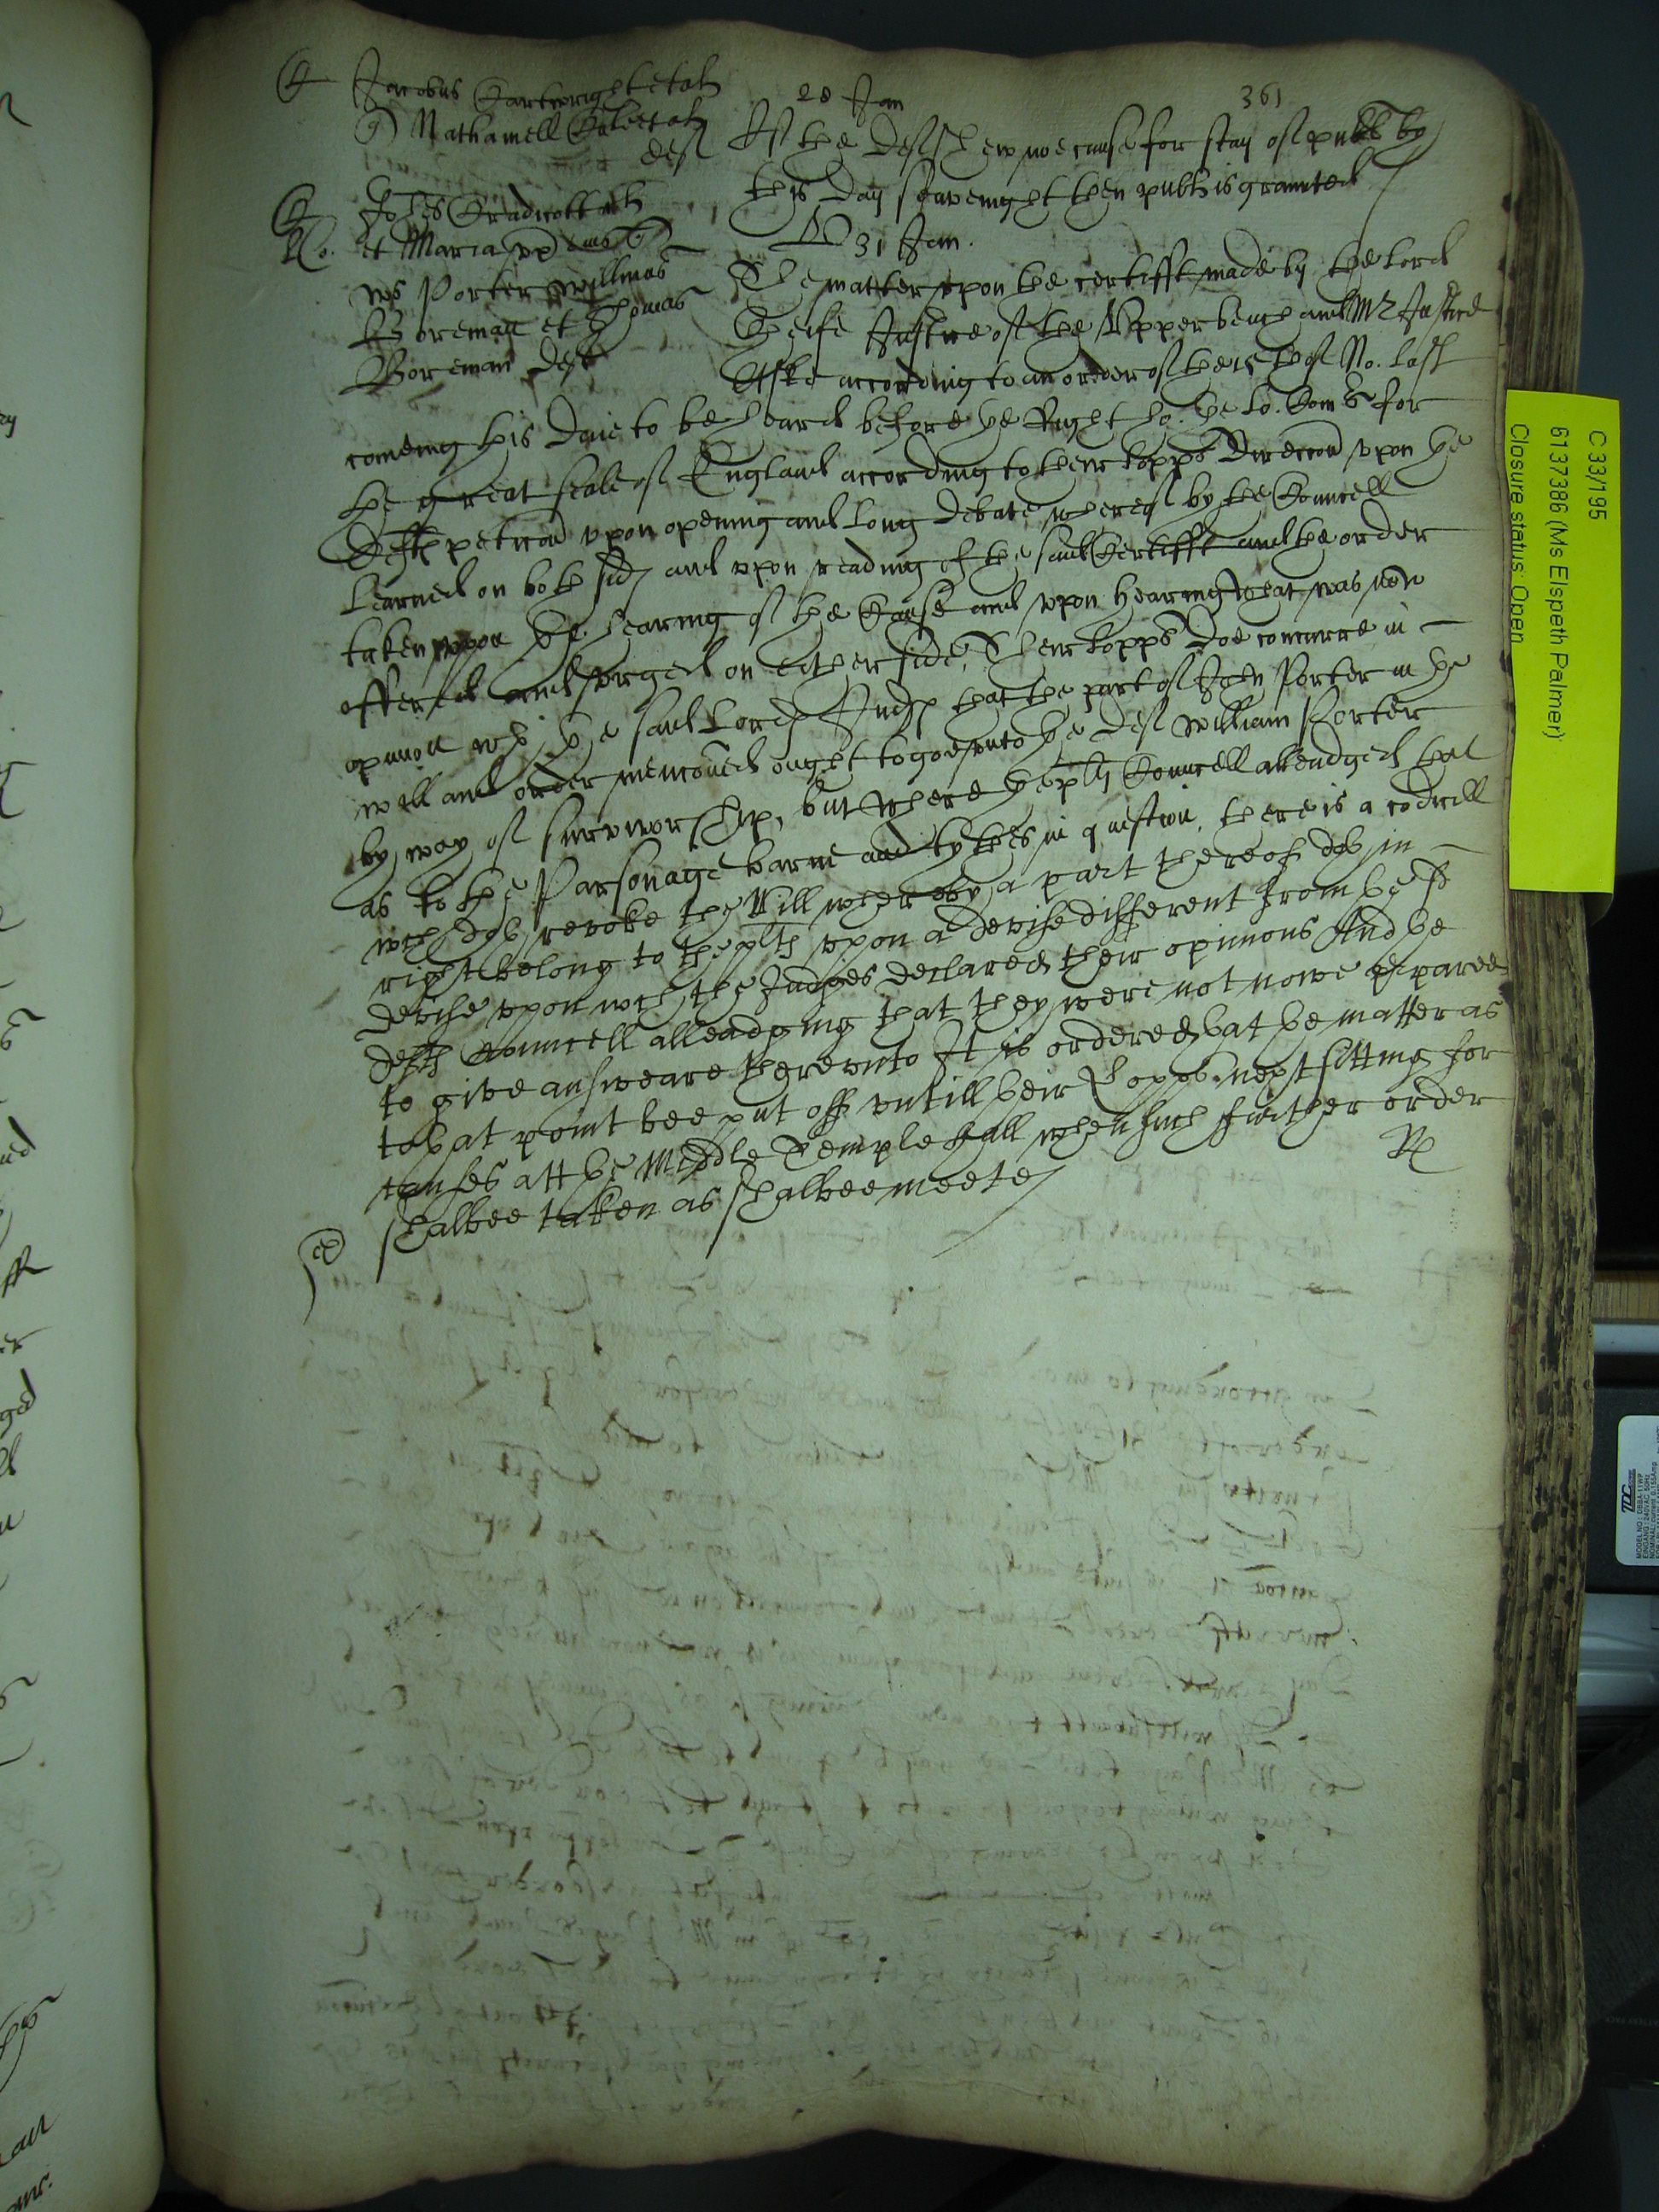 28 Jan
361
Jacobus Cartwright et al
Nathaniell
def
If the def shew noe cause for stay of publ by
this day seavenight then publ is graunted
31 Jan.
Joh
et Maria ux
Porter Willmus
Boreman et Thomas
Boreman def
The matter upon the certifft made by the Lord
Cheife Justice of the Upper bench and Mr Justice
Aske according to an order of the 15th of No. last
comeing this daie to be heard before the Right ho. the Lo. Com for
the great seale of England according to their Lopps direccon upon the
defts peticon upon opening and long debate whereof by the Councell
Learned on both sides and upon reading of the said Certifft and the order
taken upon the hearing of the Cause and upon hearing what was now
offered and urged on either side, Their Lopps doe concurre in
opinion wth the said Lord Judges that the part of John Porter in the
will and order mencoued ought to goe unto the def William Porter
by way of survivorshipp, but where the plts Councell alleadged that
as to the Parsonage barne and tythes in question, there is a codicill
wch doth revoke the Will whereby a part thereof doth in
right belong to the plts upon a devise different from the sd
devise upon wch the Judges declared their opinions And the
defts Councell alleadging that they were not nowe prepared
to give answeare thereunto It is ordered that the matter as
to that point bee put off untill their Lopps next sitting for
causes att the Middle Temple hall when such further order
shalbee taken as shalbee meete
C 33/195
6137386 (Ms Elspeth Palmer)
Closure status: Open